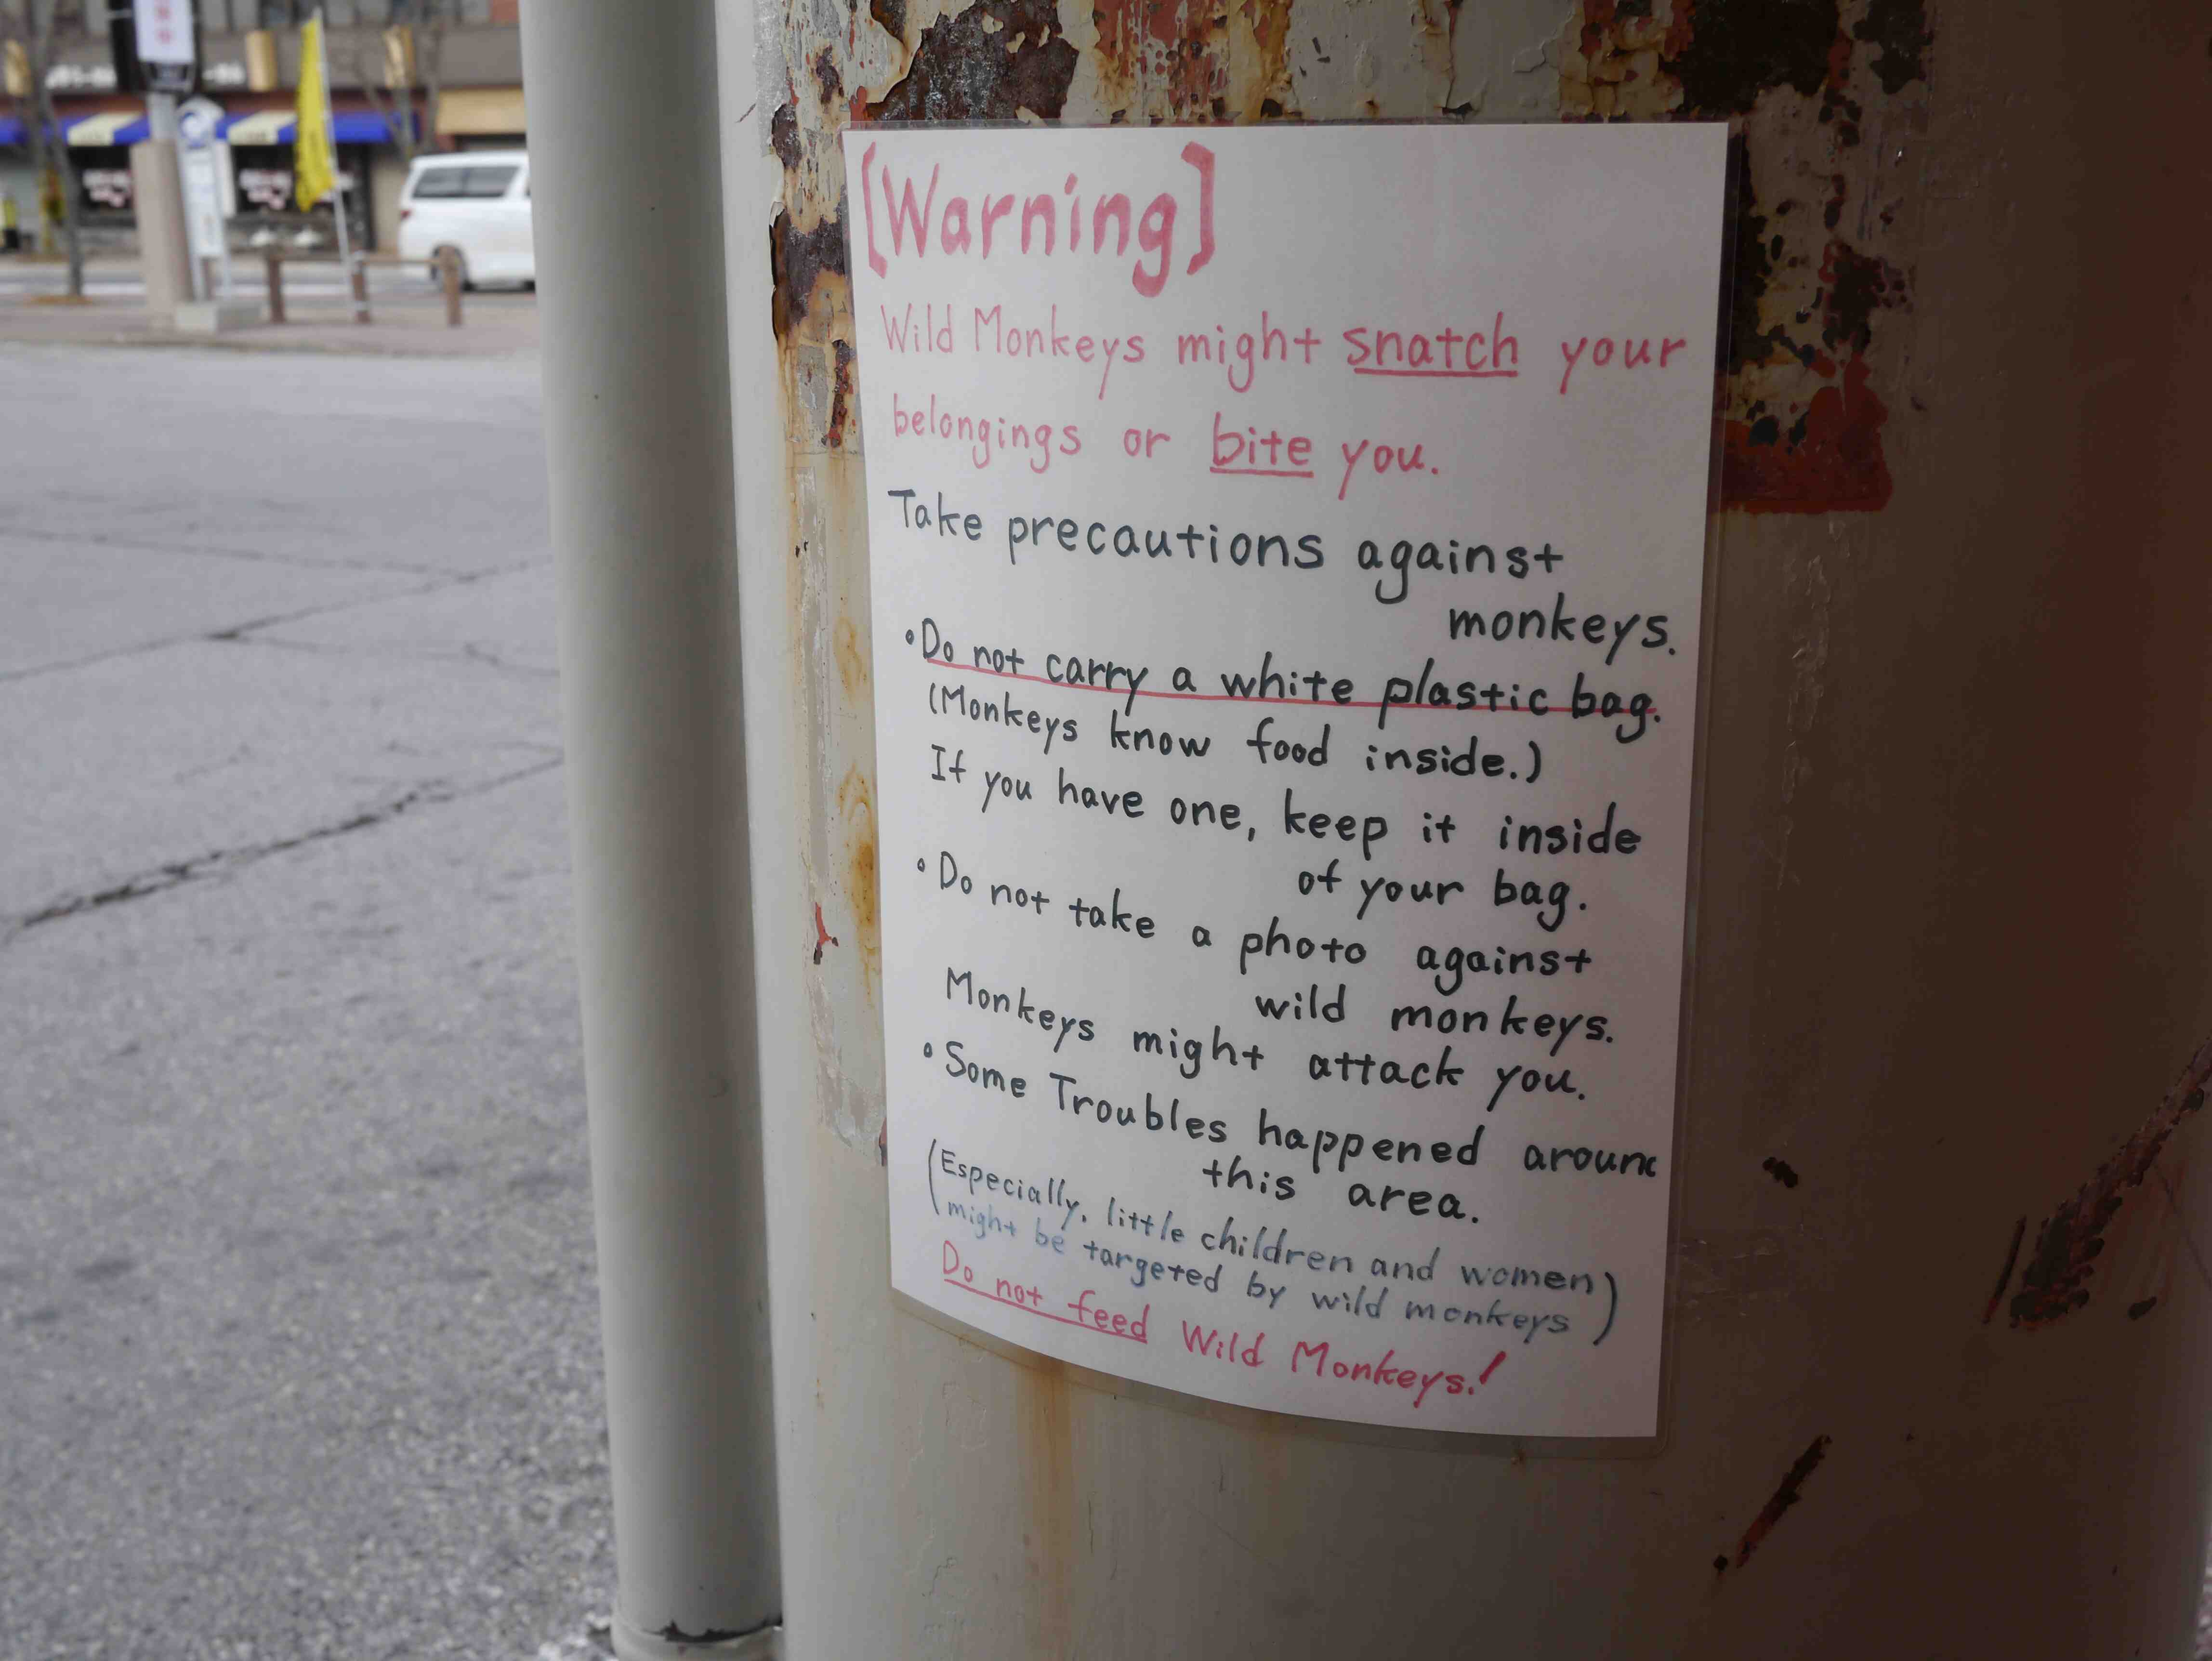 [Warning]
Wild Monkeys might snatch your
belongings or bite you.
Take precautions against
monkeys.
•Do not carry a white plastic bag.
(Monkeys know food inside.)
If you have one, keep it inside
of your bag.
•Do not take a photo against
wild monkeys.
Monkeys might attack you.
•Some Troubles happened around
this area.
(Especially, little children and women
might be targeted by wild monkeys)
Do not feed Wild Monkeys!